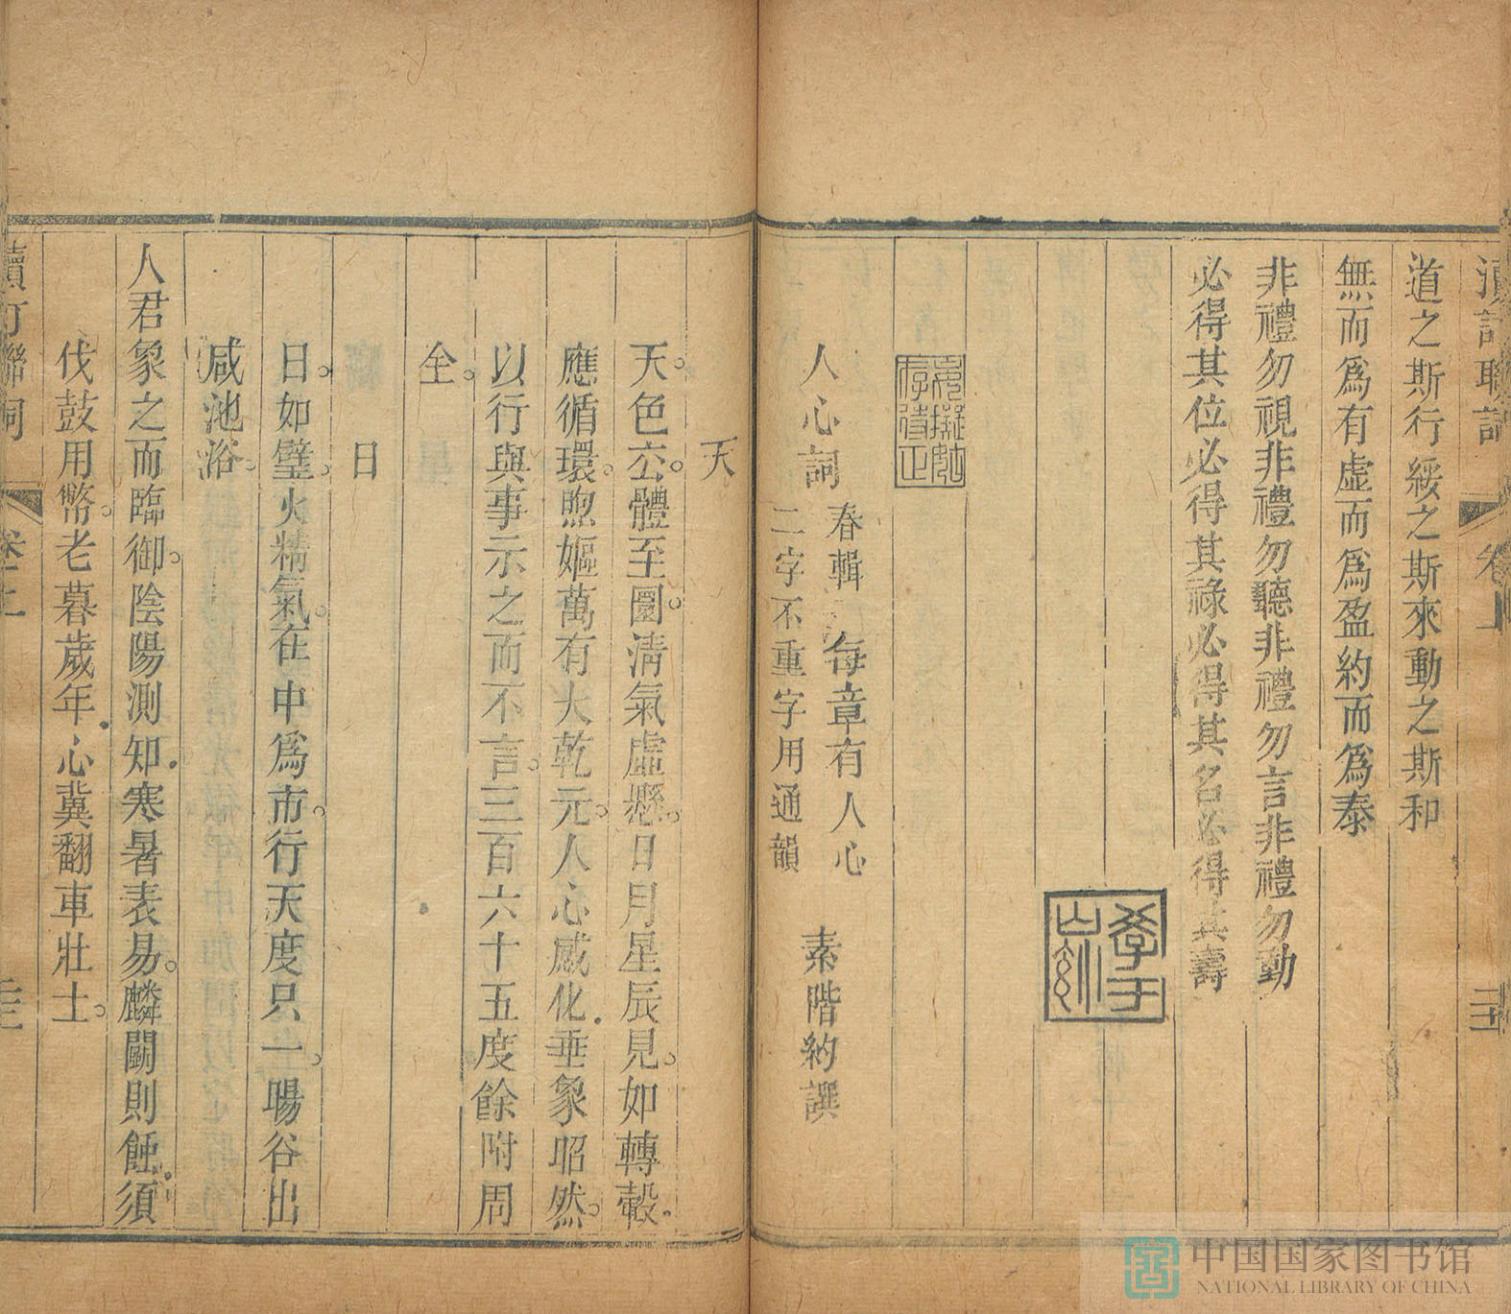 道之斯行綏之斯來動之斯和
無而爲有虛而爲盈約而爲泰
非禮勿視非禮勿聽非禮勿言非禮勿動
必得其位必得其祿必得其名必得其壽
人心詞
春輯 每章有人心
二字不重字用通韻
素階約譔
天
天色玄。體至圓。清氣虛懸。日月星辰見。如轉轂。
應循環。煦嫗萬有大乾元。人心感化垂象昭然。
以行與事示之而不言。三百六十五度餘附周
全。
日
日。如璧。火精氣。在中爲市。行天度只一。暘谷出
咸池浴。
人君象之而臨御。陰陽測知寒暑表易。麟鬭則蝕須
伐鼓用幣。老暮歲年心冀翻車壯士。
續訂聯詞 卷上
中国国家图书馆
NATIONAL LIBRARY OF CHINA